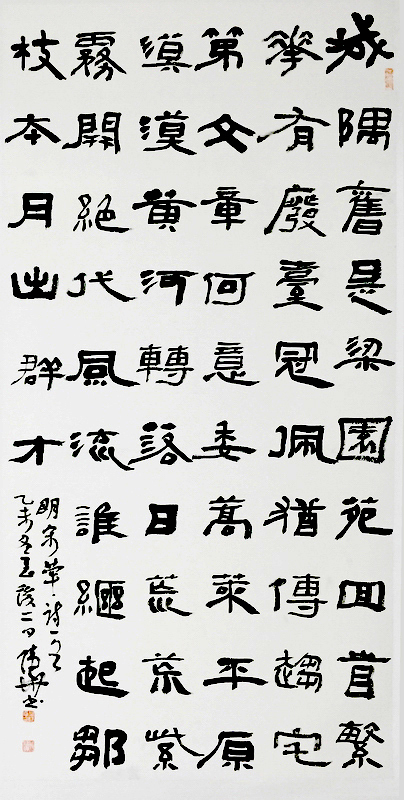 城隅舊是梁園苑回首繁
華有廢臺冠佩猶傳趙宅
第文章何意委蒿萊平原
漠漠黃河轉落日荒荒紫
霧開絕代風流誰繼起鄒
枝本月出群才
明 華詩一首
乙未冬 二日 書